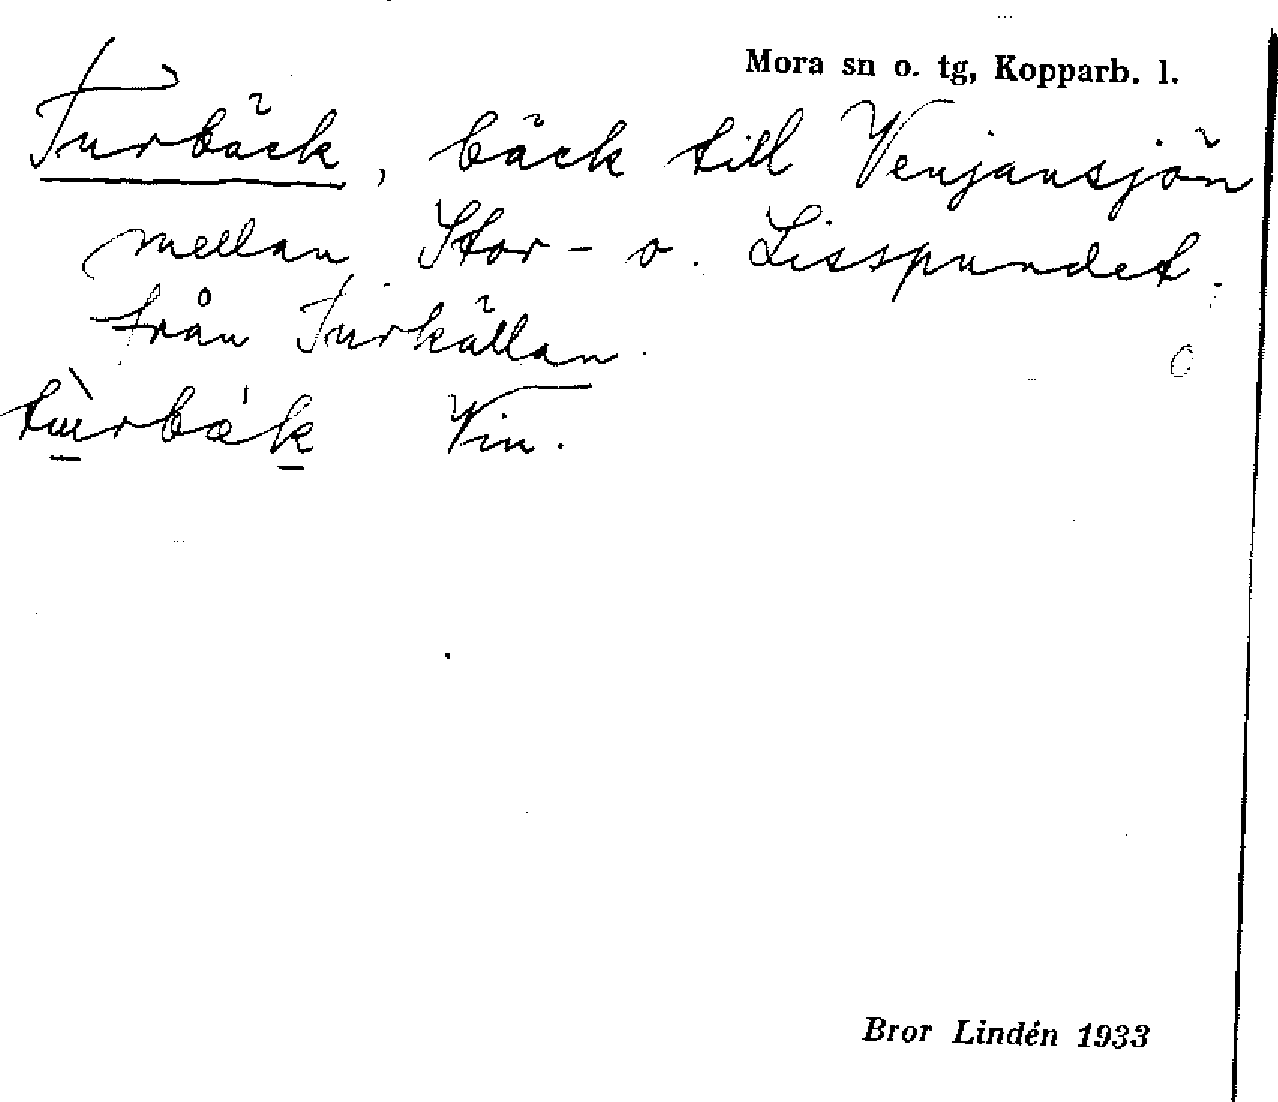 Mora sn o. tg, Kopparb. l.
Turbäck, bäck till Venjansjön
mellan Stor- o. Lisspundet.
från Turkällan.
Vin.
Bror Lindén 1933